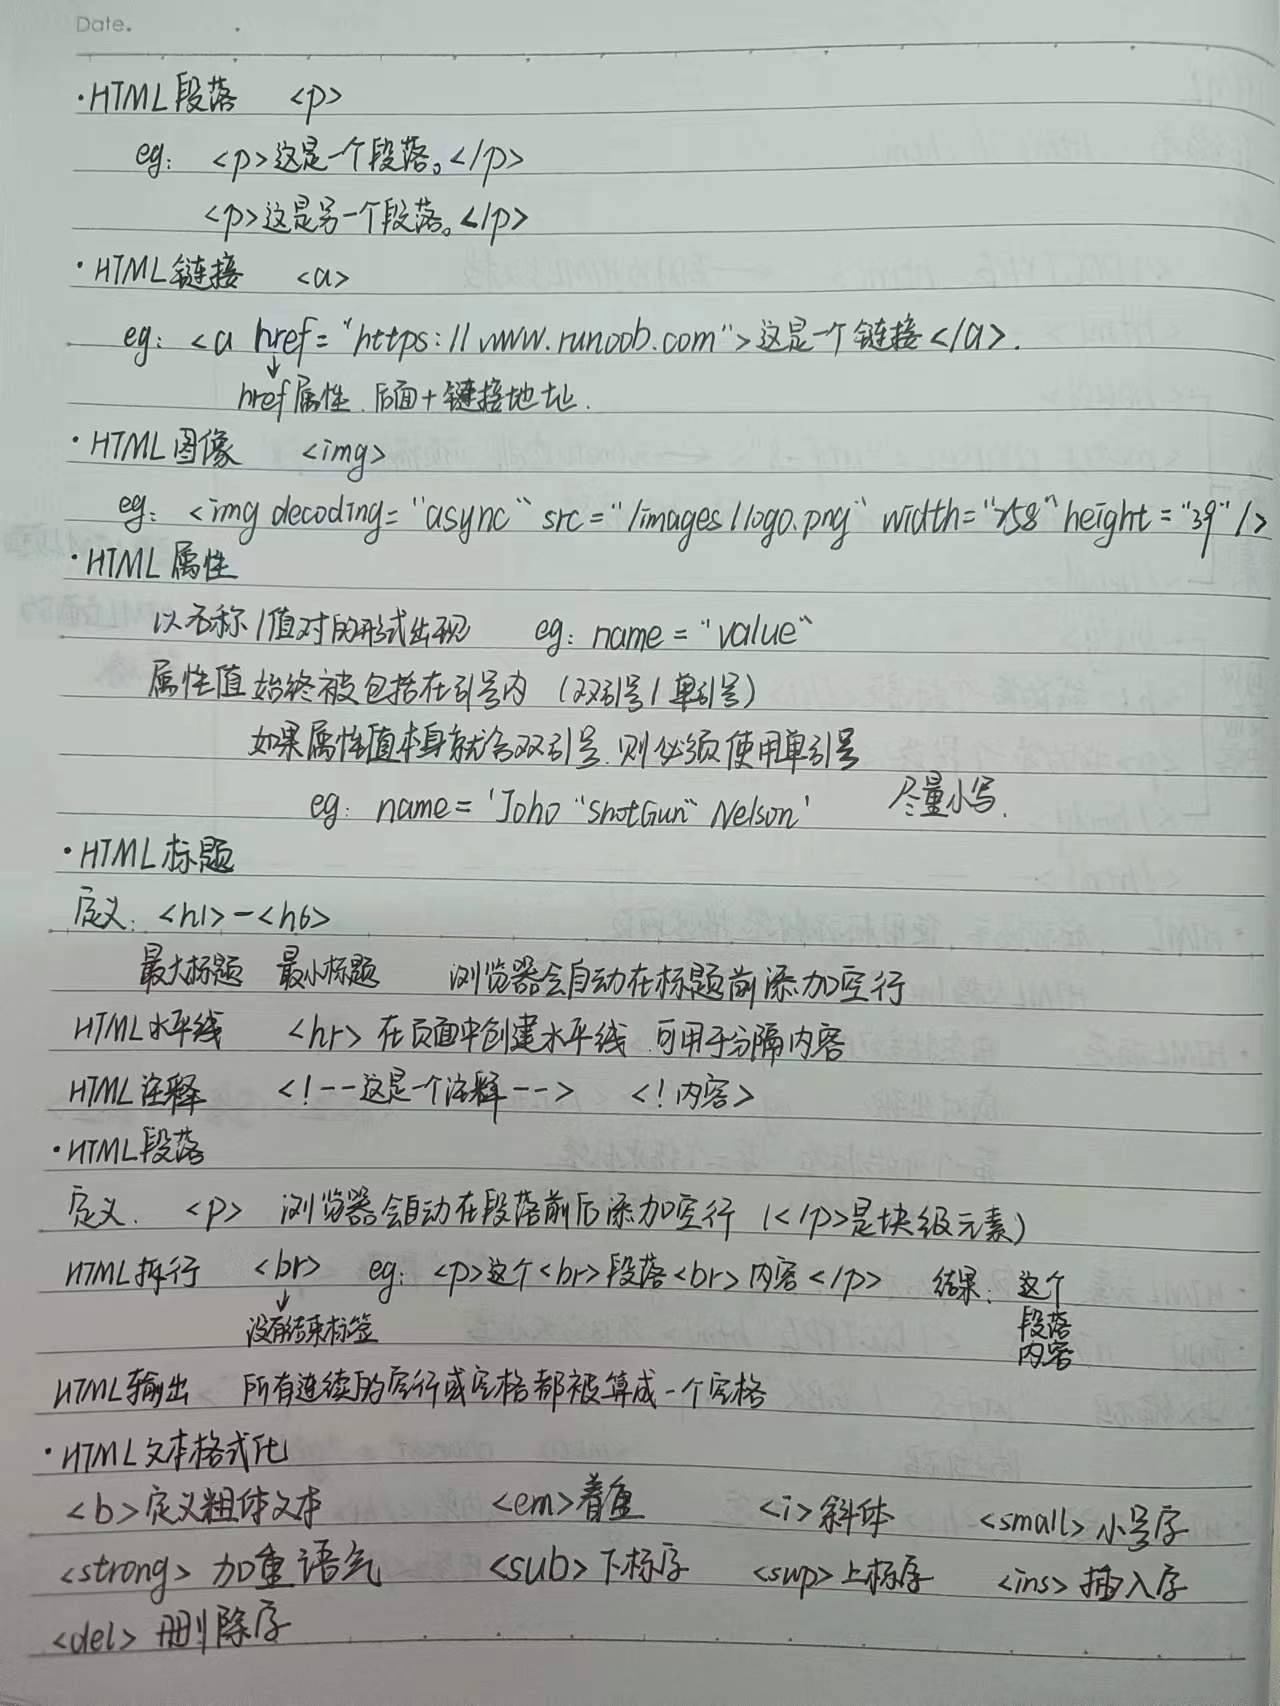 Date.
·HTML段落 <p>
eg: <p>这是一个段落。</p>
<p>这是另一个段落。</p>
·HTML链接 <a>
eg: <a href="https://www.runoob.com">这是一个链接</a>.
↓
href属性.后面+链接地址.
·HTML图像 <img>
eg: <img decoding="async" src="/images/logo.png" width="258" height="39"/>
·HTML属性
以名称/值对的形式出现 eg: name="value"
属性值始终被包括在引号内 (双引号/单引号)
如果属性值本身就含双引号.则必须使用单引号
eg: name='Joho "ShotGun" Nelson' 尽量小写.
·HTML标题
定义: <h1>-<h6>
最大标题 最小标题 浏览器会自动在标题前添加空行
HTML水平线 <hr>在页面中创建水平线.可用于分隔内容
HTML注释 <!--这是一个注释--> <!内容>
·HTML段落
定义. <p> 浏览器会自动在段落前后添加空行 (</p>是块级元素)
HTML拆行 <br> eg: <p>这个<br>段落<br>内容</p> 结果: 这个
↓ 段落
没有结束标签 内容
HTML输出 所有连续的空行或空格都被算成一个空格
·HTML文本格式化
<b>定义粗体文本 <em>着重 <i>斜体 <small>小号字
<strong>加重语气 <sub>下标字 <sup>上标字 <ins>插入字
<del>删除字